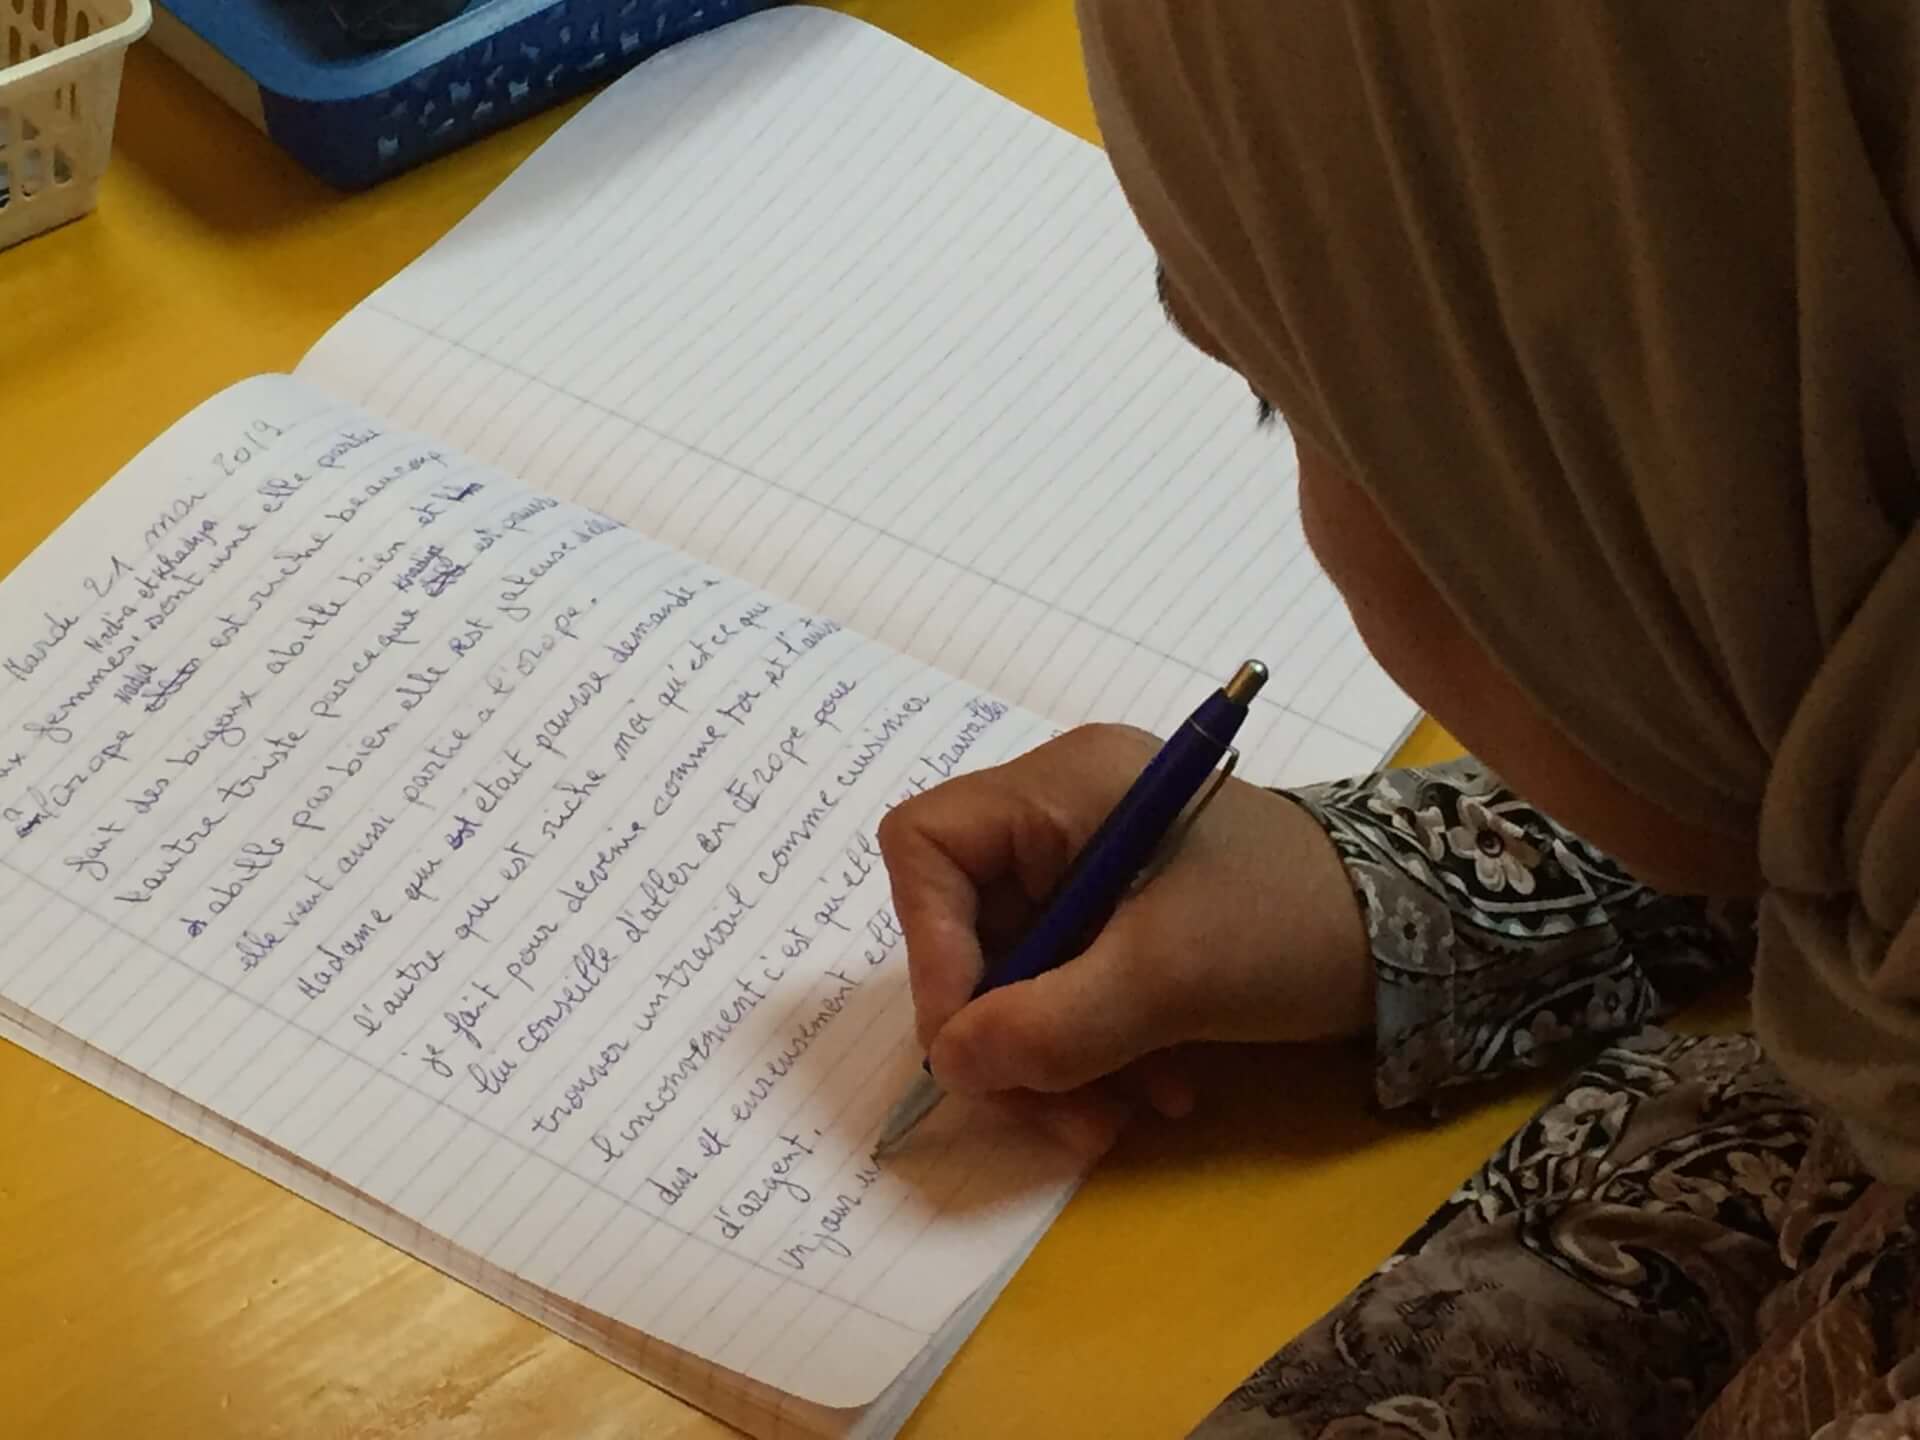 Mardi 21 mai 2019
Nadia et Khadija
femmes, sont une elle partie
à l'orope Nadia est riche beaucoup
fait des bigoux abille bien et
l'autre triste parce que Khadija est pauvre
et abille pas bien elle est jaleuse d'elle
elle vient aussi partie a l'orope.
Madame qui était pauvre demande a
l'autre que est riche moi qu'est ce que
je fait pour devenir comme toi et l'autre
lui conseille d'aller en Erope pour
trouver un travail comme cuisinier
l'inconvenient c'est qu'elle travaille
dur et eureusement elle
d'argent.
un jour un